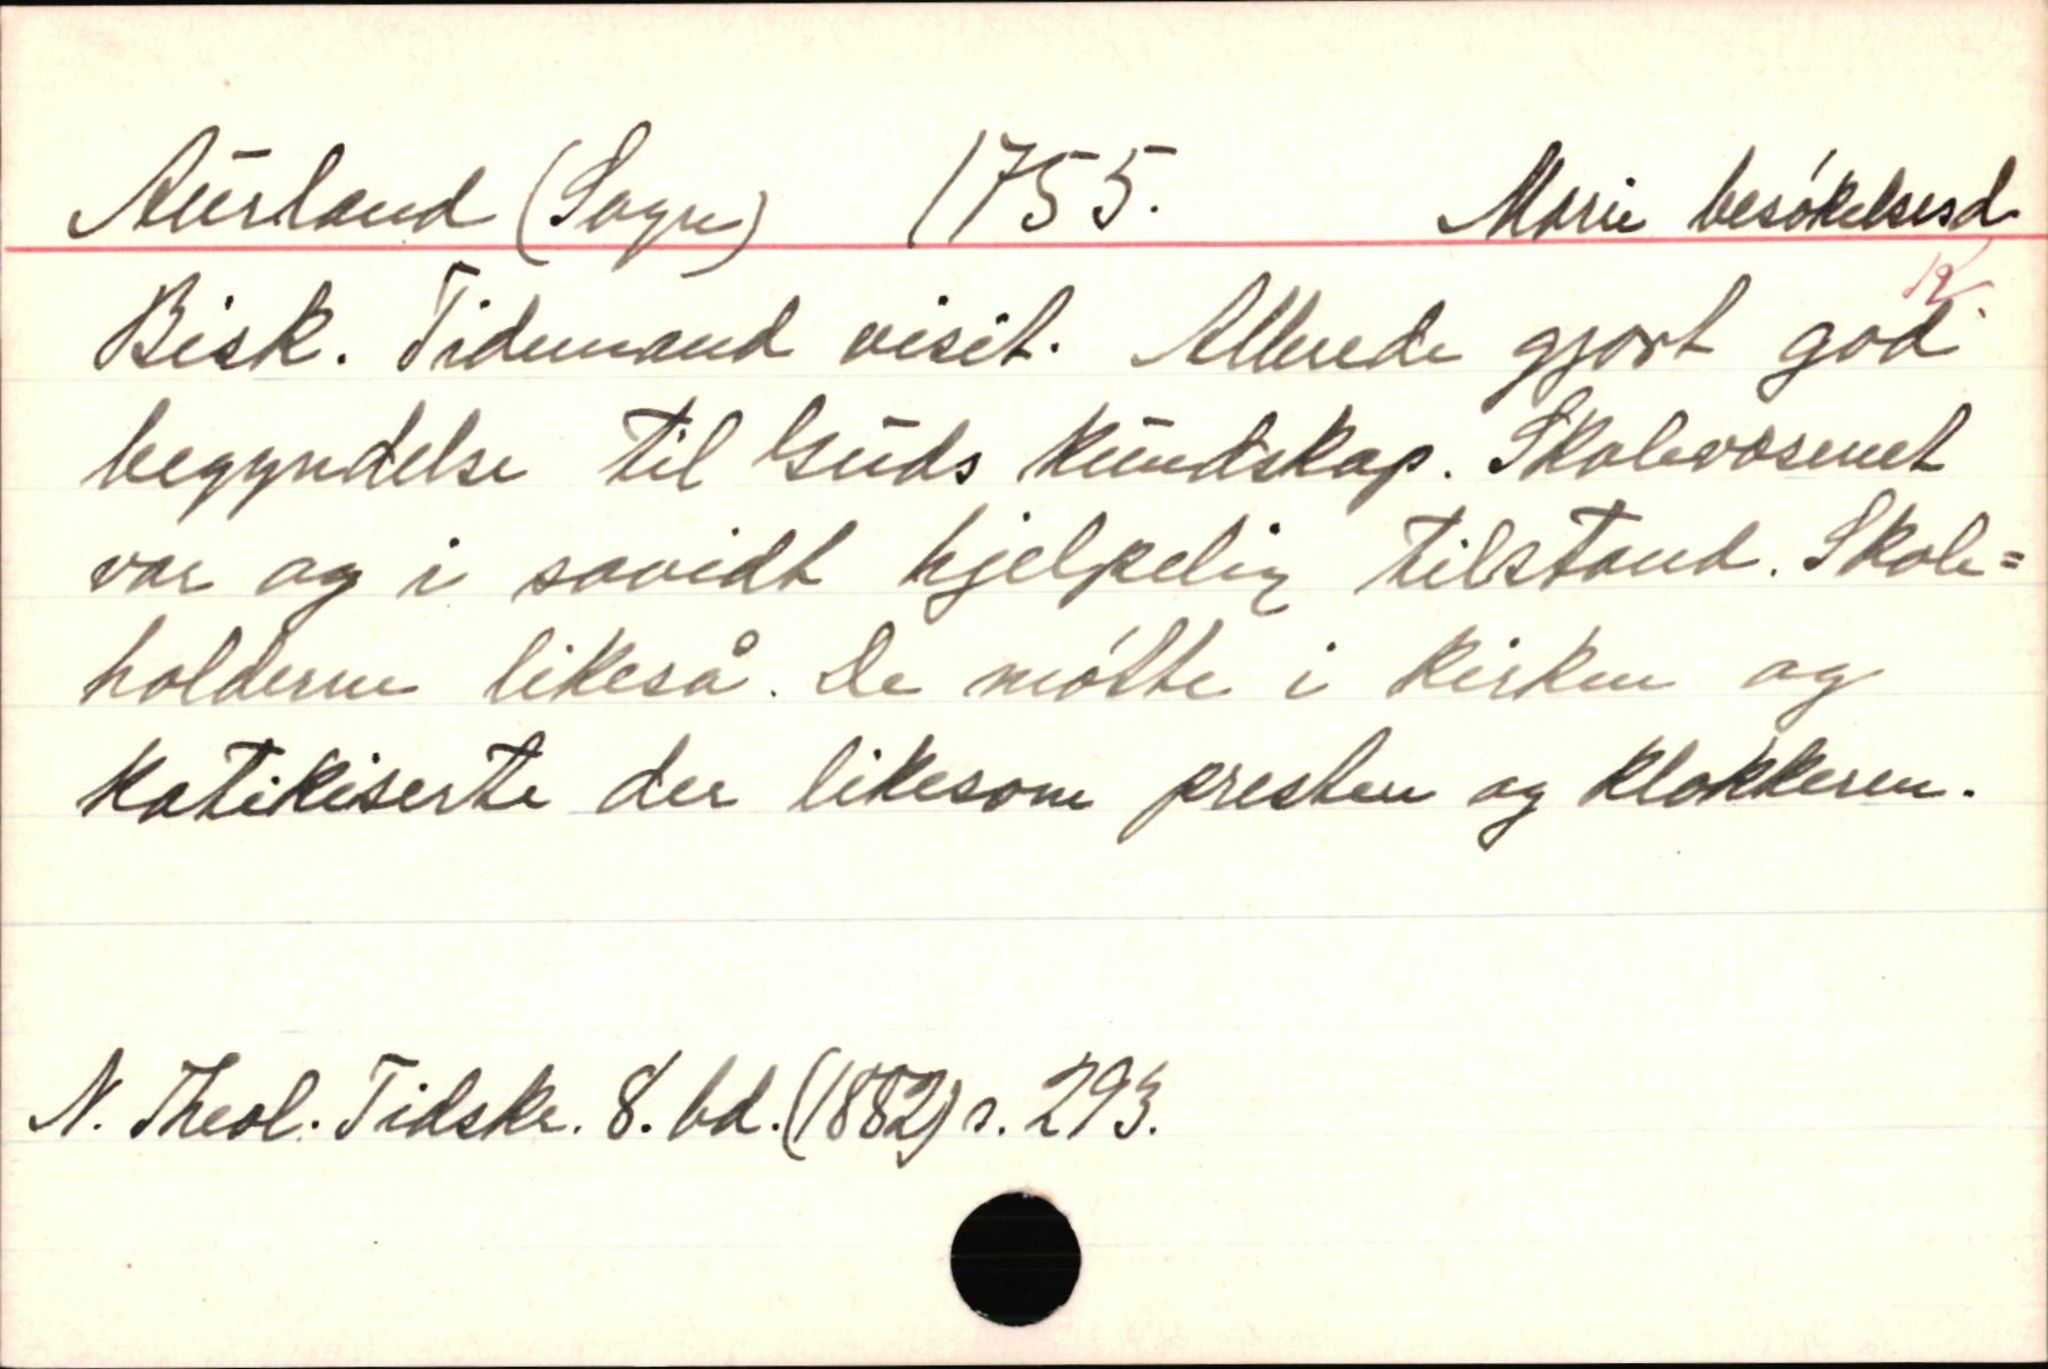 Aurland (Sogn) 1755. Marie besøkelsesd.
Bisk. Tidemand visit. Allerede gjort god
begyndelse til Guds kundskap. Skolevæsenet
var og i såvidt hjelpelig tilstand. Skole=
holderne likeså. De møtte i kirken og
katikiserte der likesom presten og klokkeren.
N. Theol. Tidskr. 8. bd. (1882) s. 293.